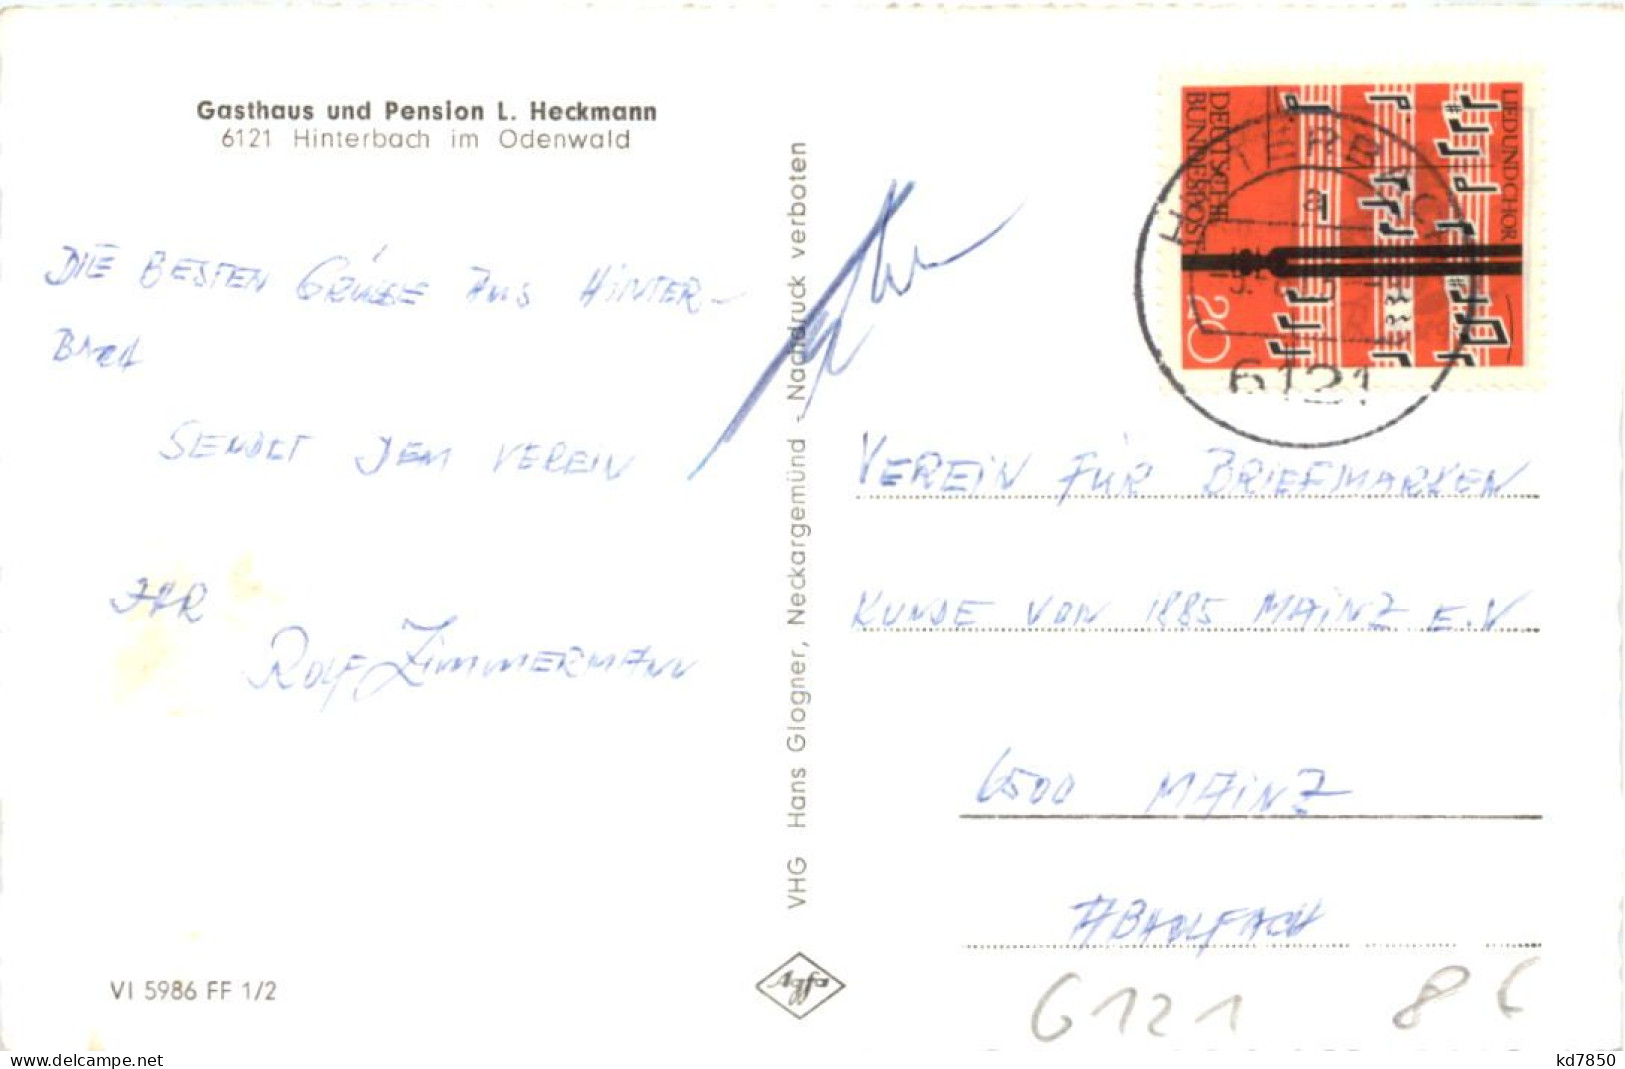 Gasthaus und Pension L. Heckmann
6121 Hinterbach im Odenwald
DIE BESTEN GRÜSSE AUS HINTER-
BACH
SENDET DEM VEREIN
IHR
ROLF ZIMMERMANN
VI 5986 FF 1/2
VHG Hans Glogner, Neckargemünd - Nachdruck verboten
Agfa
LIED UND CHOR
DEUTSCHE
BUNDESPOST
20
HINTERBACH
a
6121
VEREIN FÜR BRIEFMARKEN
KUNDE VON 1885 MAINZ E.V
6500 MAINZ
ABHOLFACH
6121 8€
delcampe.net
kd7850